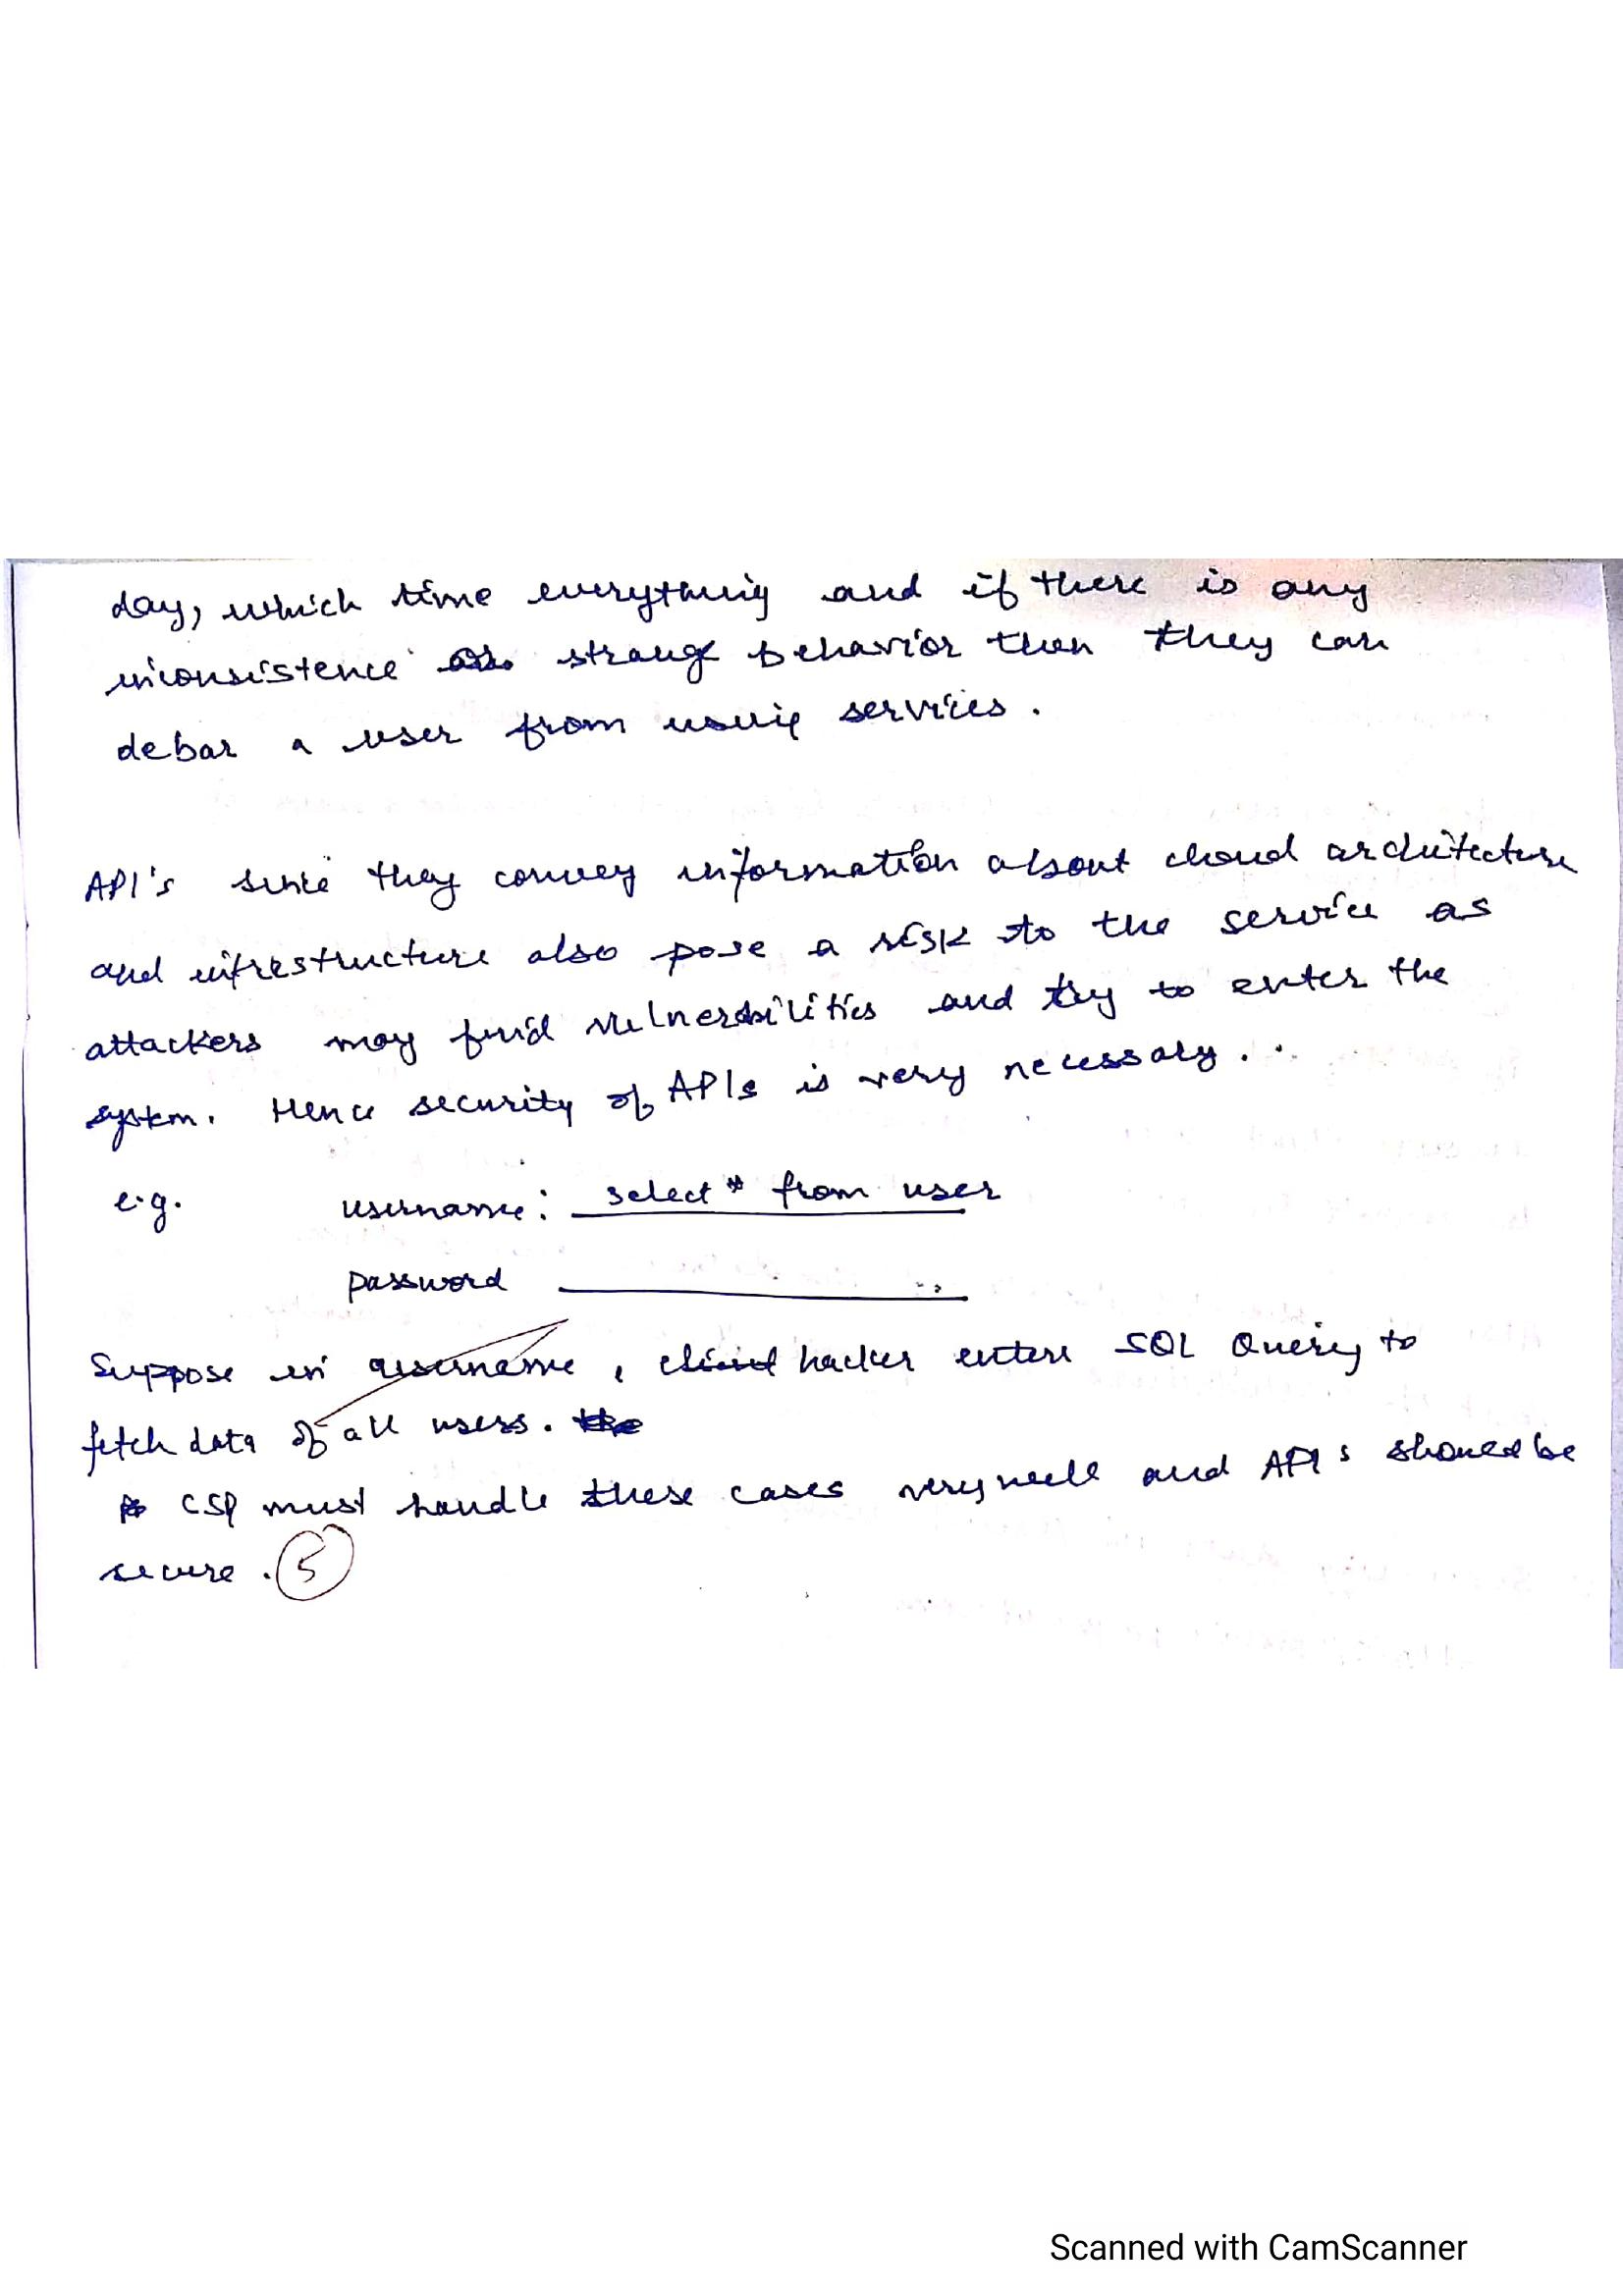 day, which time everything and if there is any
inconsistence or strange behavior then they can
debar a user from using services.
API's since they convey information about cloud architecture
and infrestructure also pose a risk to the service as
attackers may find vulnerabilities and try to enter the
system. Hence security of APIs is very necessary..
e.g. username: select * from user
password
Suppose in username, client hacker enters SQL Query to
fetch data of all users. the
CSP must handle these cases very well and API's should be
secure. 5
Scanned with CamScanner